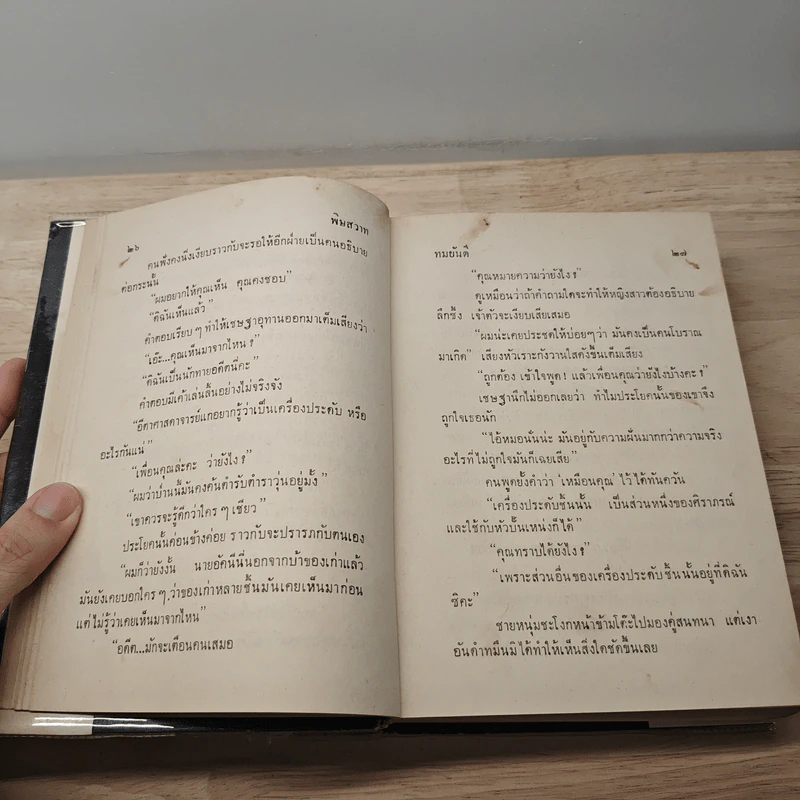 ๒๖ พิษสวาท
คนฟังคงนิ่งเงียบราวกับจะรอให้อีกฝ่ายเป็นคนอธิบาย
ต่อกระนั้น
“ผมอยากให้คุณเห็น คุณคงชอบ”
“ดิฉันเห็นแล้ว”
คำตอบเรียบๆ ทำให้เชษฐาอุทานออกมาเต็มเสียงว่า
“เอ๊ะ...คุณเห็นมาจากไหน ?”
“ดิฉันเป็นนักทายอดีตนี่คะ”
คำตอบมีเค้าเล่นลิ้นอย่างไม่จริงจัง
“อีตาศาสดาจารย์แกอยากรู้ว่าเป็นเครื่องประดับ หรือ
อะไรกันแน่”
“เพื่อนคุณล่ะคะ ว่ายังไง ?”
“ผมว่าป่านนี้มันคงค้นตำรับตำราวุ่นอยู่มั้ง”
“เขาควรจะรู้ดีกว่าใคร ๆ เชียว”
ประโยคนั้นค่อนข้างค่อย ราวกับจะปรารภกับตนเอง
“ผมก็ว่ายังงั้น นายอัคนีนี่นอกจากบ้าของเก่าแล้ว
มันยังเคยบอกใคร ๆ ว่าของเก่าหลายชิ้นมันเคยเห็นมาก่อน
แต่ไม่รู้ว่าเคยเห็นมาจากไหน”
“อดีต...มักจะเตือนคนเสมอ
ทมยันตี ๒๗
“คุณหมายความว่ายังไง ?”
ดูเหมือนว่าถ้าคำถามใดจะทำให้หญิงสาวต้องอธิบาย
ลึกซึ้ง เจ้าตัวจะเงียบเสียเสมอ
“ผมน่ะเคยประชดให้บ่อยๆ ว่า มันคงเป็นคนโบราณ
มาเกิด” เสียงหัวเราะกังวานใสดังขึ้นเต็มเสียง
“ถูกต้อง เข้าใจพูด ! แล้วเพื่อนคุณว่ายังไงบ้างคะ ?”
เชษฐานึกไม่ออกเลยว่า ทำไมประโยคนั้นของเขาจึง
ถูกใจเธอนัก
“ไอ้หมอนั่นน่ะ มันอยู่กับความฝันมากกว่าความจริง
อะไรที่ไม่ถูกใจมันก็เฉยเสีย”
คนพูดยั้งคำว่า ‘เหมือนคุณ’ ไว้ได้ทันควัน
“เครื่องประดับชิ้นนั้น เป็นส่วนหนึ่งของศิราภรณ์
และใช้กับหัวปั้นเหน่งก็ได้”
“คุณทราบได้ยังไง ?”
“เพราะส่วนอื่นของเครื่องประดับชิ้นนั้นอยู่ที่ดิฉัน
ซิคะ”
ชายหนุ่มชะโงกหน้าข้ามโต๊ะไปมองคู่สนทนา แต่เงา
อันดำทมึนมิได้ทำให้เห็นสิ่งใดชัดขึ้นเลย